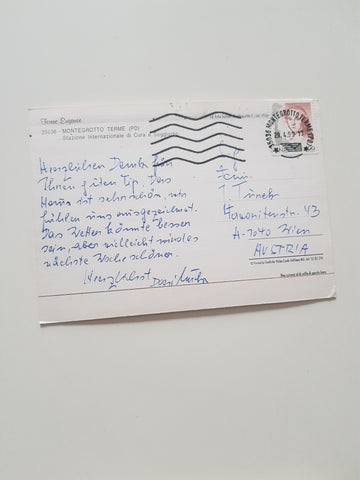 Terme Euganee
35036 - MONTEGROTTO TERME (PD)
Stazione Internazionale di Cura e Soggiorno
35036 MONTEGROTTO TERME (PD)
Herzlichen Dank für
Ihren guten Tip. Das
Haus ist sehr schön, wir
fühlen uns ausgezeichnet.
Das Wetter könnte besser
sein, aber vielleicht wird es
nächste Woche schöner.
Herzlichst
Fam.
43
A-1040 Wien
AUSTRIA